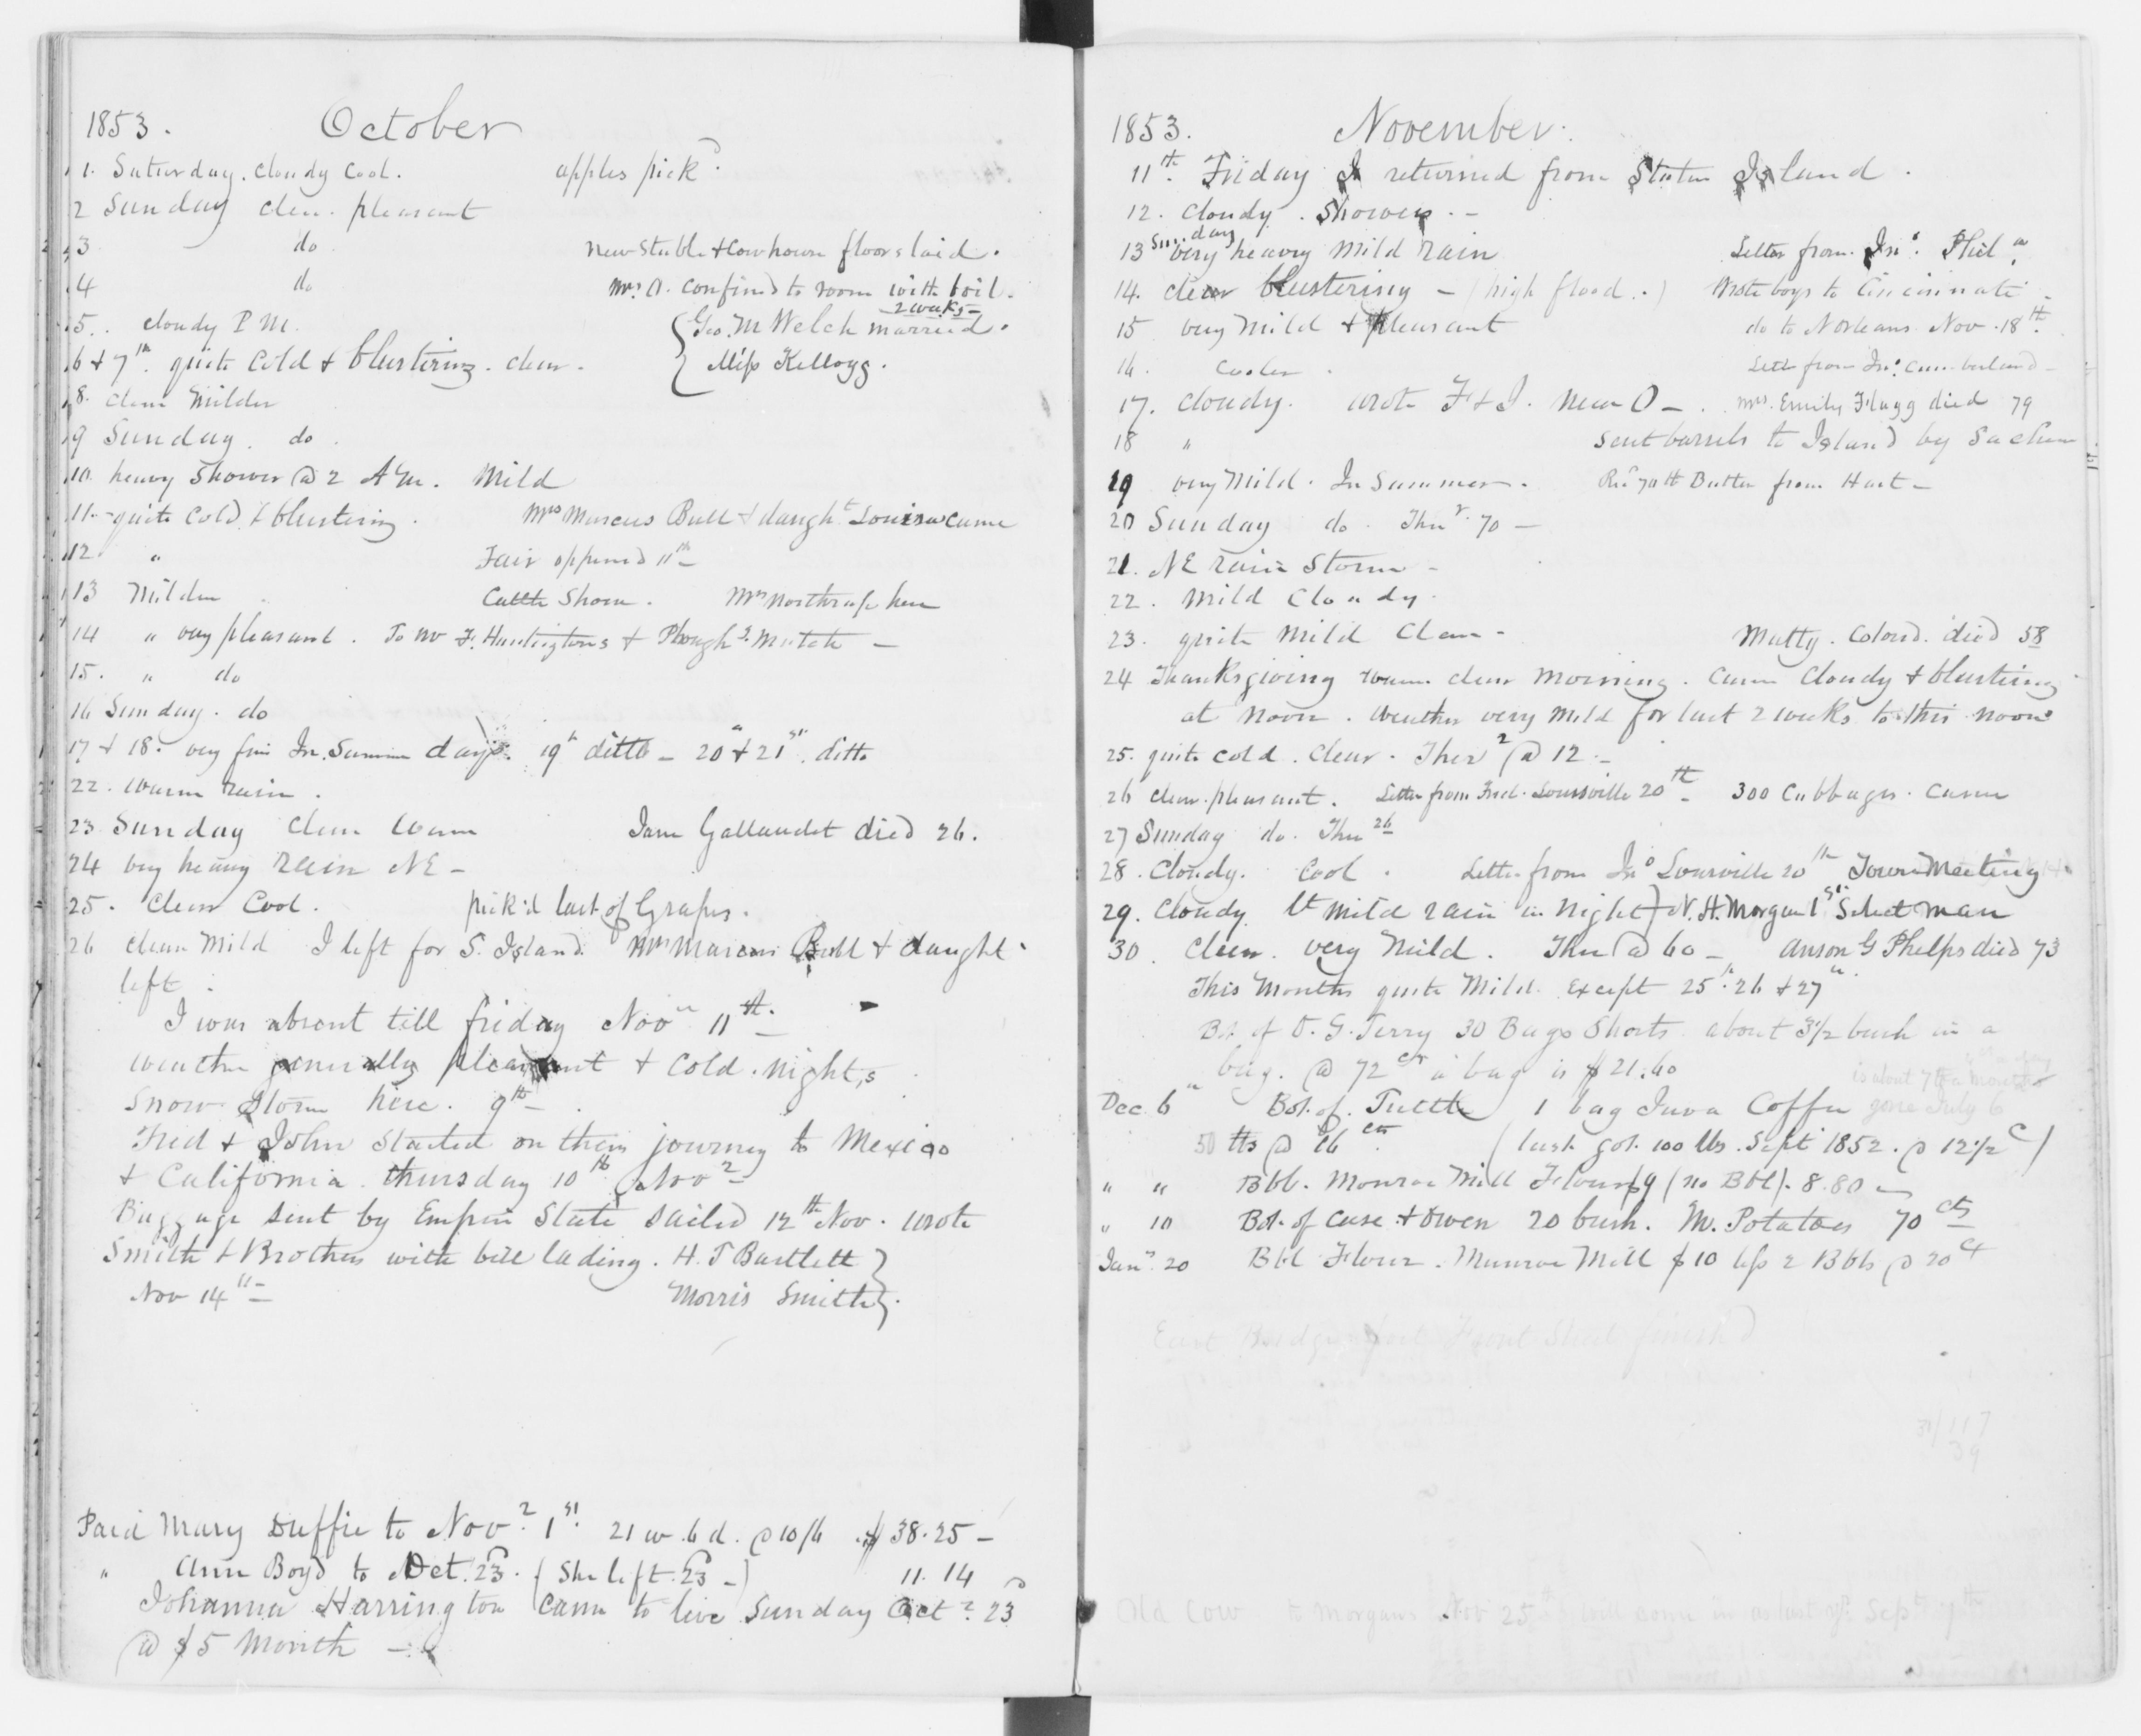 1853. October
1. Saturday. Cloudy Cool. apples pickd.
2 Sunday clear. pleasant
3 do new Stable & Cowhouse floors laid.
4 do Mrs O. confined to room with boil. 2 weeks
5. cloudy P M. Geo. M Welch married.
6 & 7th. quite Cold & blustering. clear. Miss Kellogg.
8. Clear Milder
9 Sunday. do.
10. heavy Shower @ 2 A M. Mild
11. quite Cold & blustering. Mrs Marcus Bull & daught Louisa came
12 " Fair oppened 11th
13 Milder Cattle Show. Mrs Northrup here
14 " very pleasant. To Mr F. Huntingtons & Plough g. Match
15. " do
16 Sunday. do
17 & 18. very fine In. Summer days. 19th ditto - 20 & 21st. ditto
22. Warm rain.
23 Sunday Clear Warm Jane Gallaudet died 26.
24 very heavy Rain NE -
25. Clear Cool. pick'd last of Grapes.
26 Clear Mild I left for S. Island. Mrs Marcus Bull & daught
left.
I was absent till friday Novr 11th.
Weather generally pleasant & Cold. nights
Snow Storm here. 9th
Fred & John Started on their journey to Mexico
& California. thursday 10th Novr
Baggage sent by Empire State sailed 12th Nov. wrote
Smith & Brothers with bill lading. H. T Bartlett
Nov 14th Morris Smith
Paid Mary Duffie to Novr. 1st. 21 w. 6 d. @ 10/6 $38.25 -
" Ann Boyd to Oct. 23. (She left 23 -) 11.14
Johanna Harrington Came to live Sunday Octr. 23
@ $5 Month -
1853. November.
11th. Friday I returned from Staten Island.
12. Cloudy. Showery. -
13 Sunday very heavy Mild Rain Letter from Jno. Phila.
14. clear blustering - (high flood.) Wrote boys to Cincinnati
15 very Mild & pleasant do to N Orleans Nov. 18th
16. Cooler. Lettr from Jno. Cumberland
17. Cloudy. wrote F & J. New O -. Mrs. Emily Flagg died 79
18 " Sent barrels to Island by Sachem
19 very Mild. In Summer. Recd 70 lb Butter from Hart -
20 Sunday do. Ther. 70 -
21. NE rain Storm -
22. Mild Cloudy.
23. quite Mild Clear - Matty. Colord. died 58
24 Thanksgiving warm clear morning. Came Cloudy & blustering
at Noon. Weather very Mild for last 2 weeks to this noon
25. quite cold. Clear. Ther @ 12. -
26 clear. pleasant. Letter from Fred. Louisville 20th. 300 Cabbages. Came
27 Sunday do. Ther 26
28. Cloudy. Cool. Letter from Jno Louisville 20th Town Meeting
29. Cloudy lt mild rain in Night) N. H. Morgan 1st Select man
30. Clear. very Mild. Ther @ 60 - Anson G Phelps died 73
This Months quite Mild. Except 25th. 26 & 27th.
Bot. of O. G. Terry 30 Bags Shorts about 3 1/2 bush in a
bag. @ 72 cts a bag is $21.60
is about 7 a month
Dec. 6th Bot. of. Tuttle 1 bag Java Coffee gone July 6
50 lbs @ 16 cts (last got. 100 lbs. Sept 1852. @ 12 1/2 c)
" " Bbl. Monroe Mill Flour $9 (no Bbl). 8.80
" 10 Bot. of Case & Owen 20 bush. M. Potatoes 70 cts
Jany 20 Bbl Flour. Munroe Mill $10 less 2 Bbls @ 20 ct
31/117
39
Old Cow to Morgans Nov 25th Sept 7th